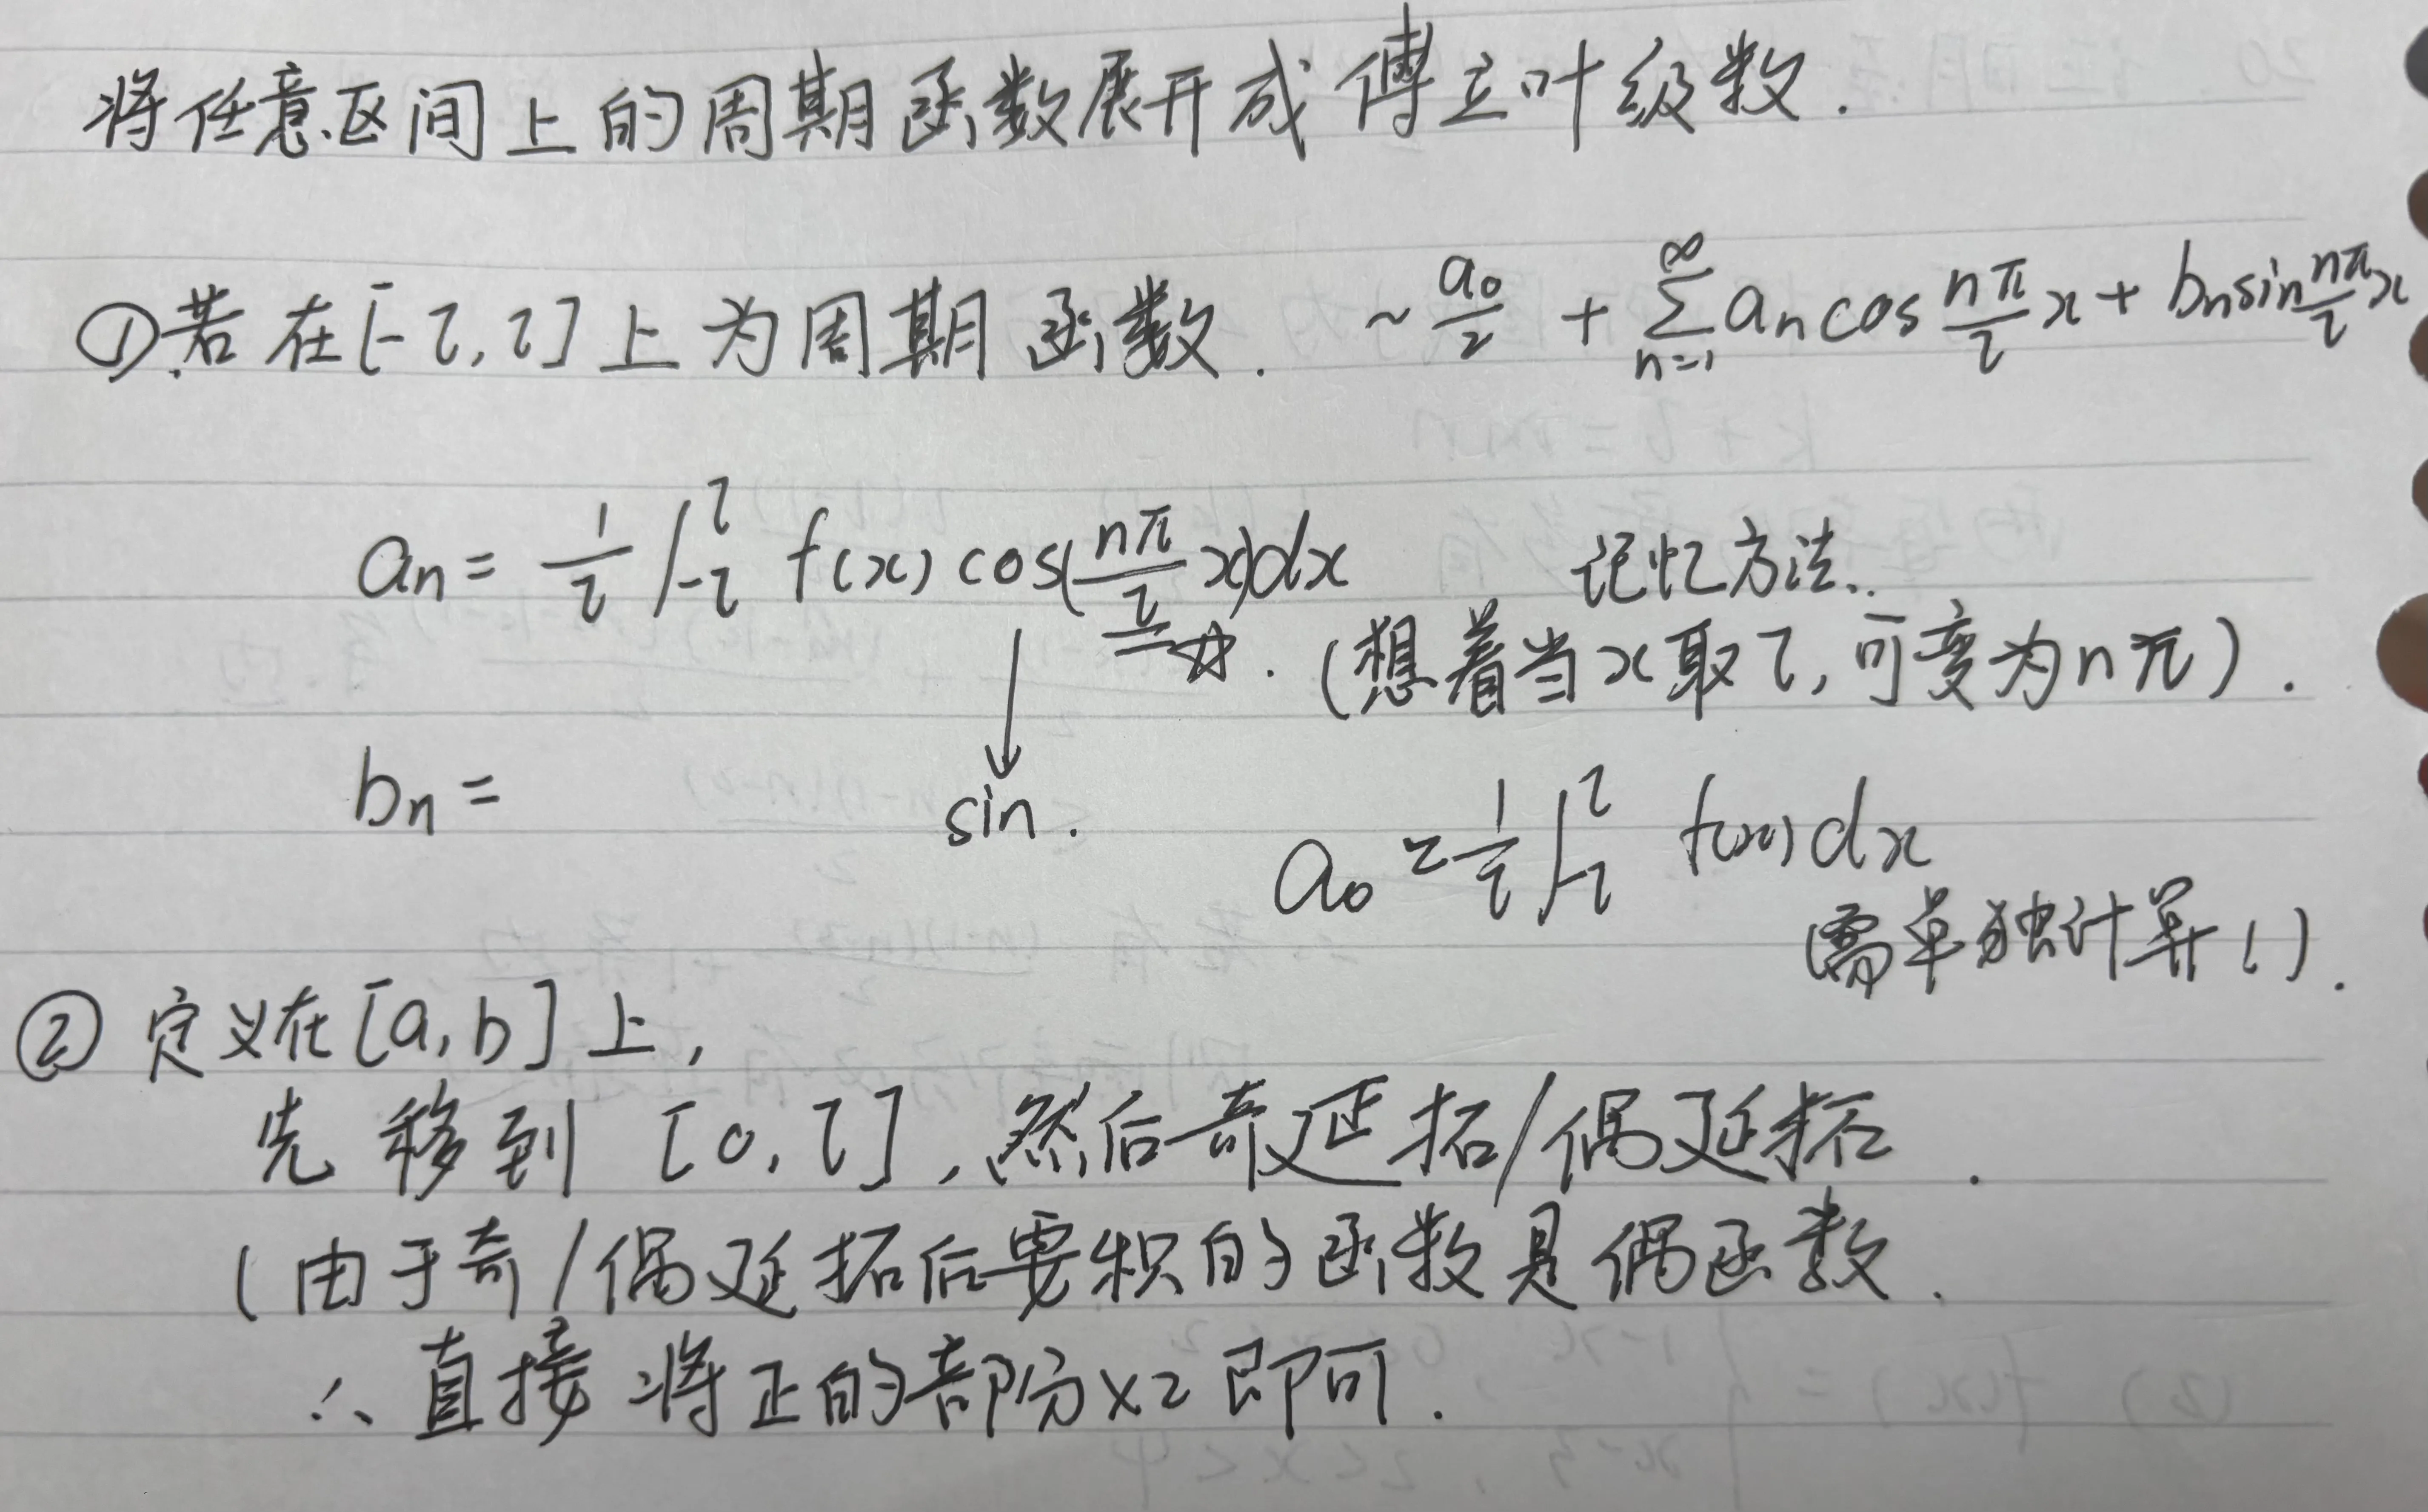 将任意区间上的周期函数展开成傅立叶级数.
①若在[-l,l]上为周期函数. ~ a₀/2 + ∑_{n=1}^{∞} aₙcos nπ/l x + bₙsin nπ/l x
aₙ = 1/l ∫_{-l}^{l} f(x) cos(nπ/l x)dx 记忆方法..
☆. (想着当x取l,可变为nπ).
bₙ = sin.
a₀ = 1/l ∫_{-l}^{l} f(x)dx
(需单独计算!).
② 定义在[a,b]上,
先移到 [0,l],然后奇延拓/偶延拓.
(由于奇/偶延拓后要积的函数是偶函数.
∴直接将正的部分×2即可.